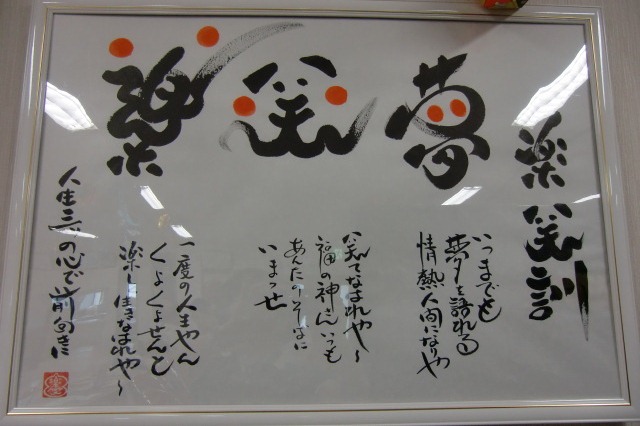 楽笑訓
夢
いつまでも
夢を語れる
情熱人間になりや
笑
笑てなはれや〜
福の神さんいつも
あんたのそばに
いまっせ
楽
一度の人生やん
くよくよせんと
楽し生きなはれや〜
人生三つの心で前向きに